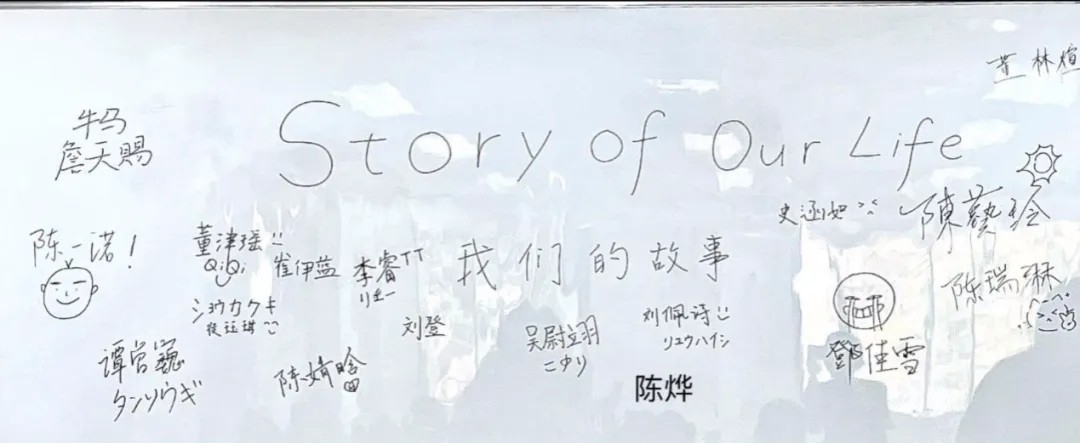 林煊
牛马
詹天賜
Story of Our Life
史涵如
陳藝玲
陈一诺！
董津瑶
QiQi
崔伊蓝
李睿TT
我们的故事
陈瑞琳
ショウカクキ
刘登
吴尉立羽
こゆり
刘佩诗
リュウハイシ
鄧佳雪
陈婧晗
タンソウギ
陈烨